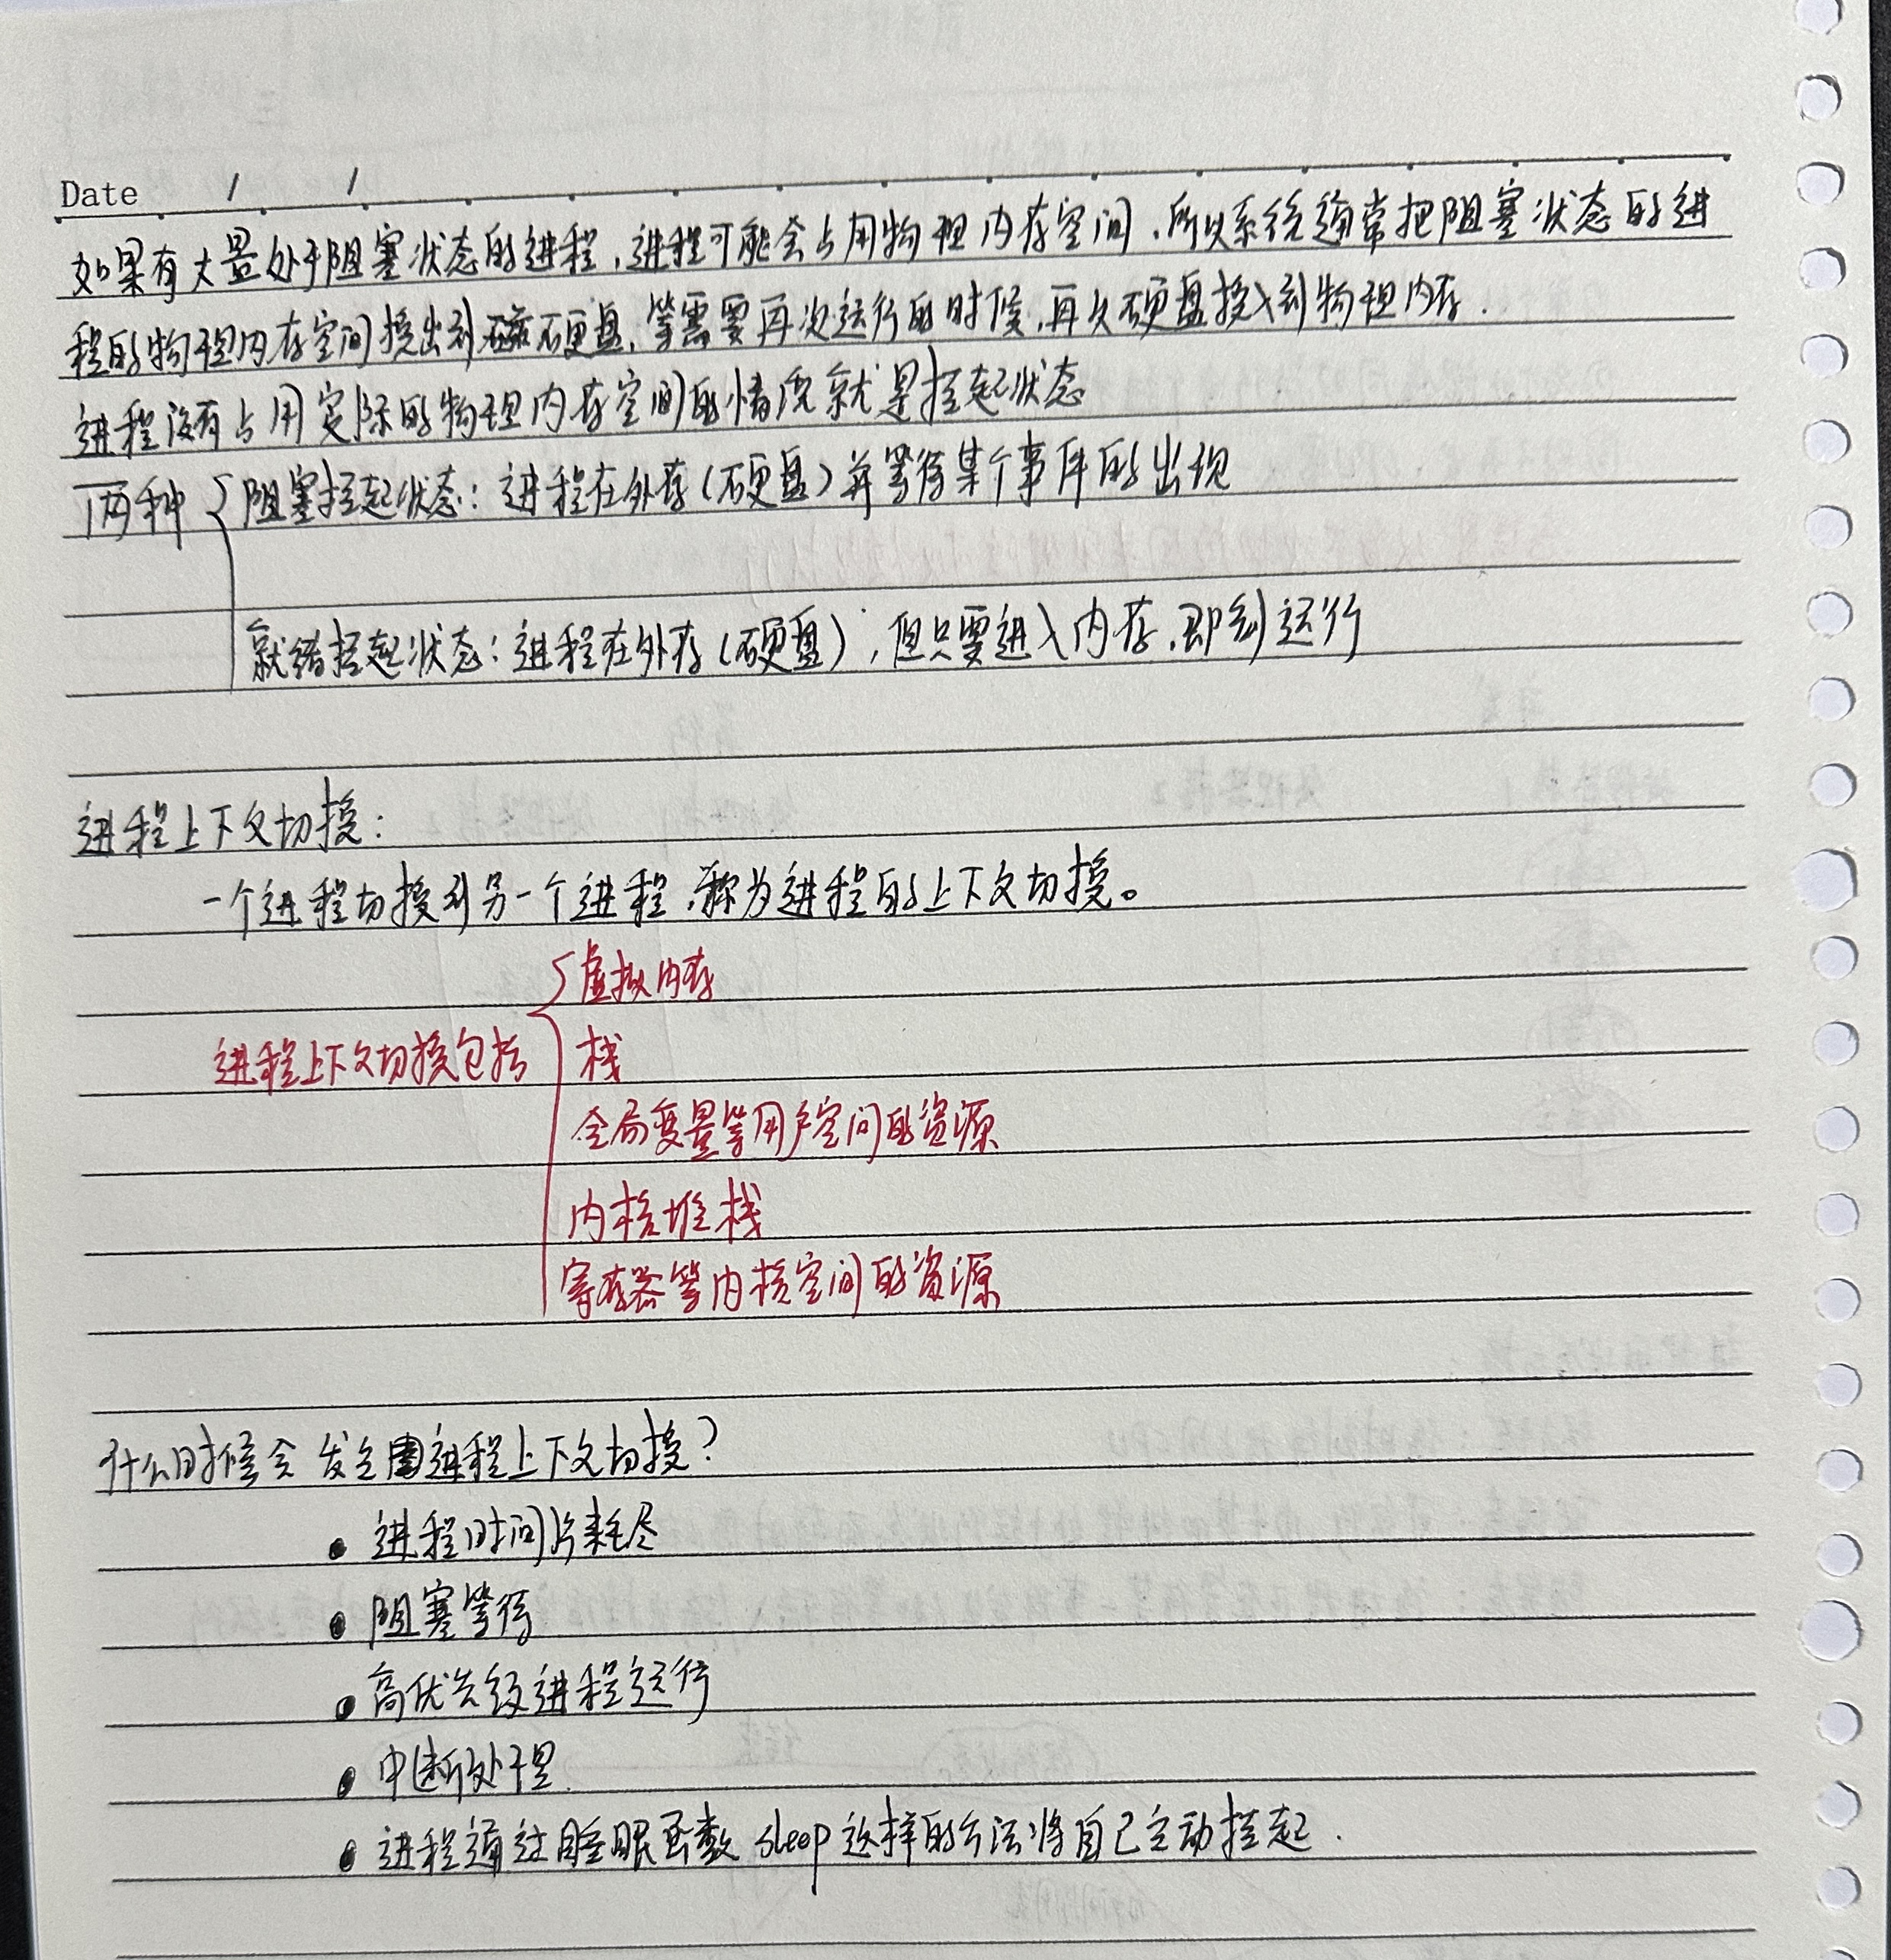 Date / /
如果有大量处于阻塞状态的进程，进程可能会占用物理内存空间，所以系统通常把阻塞状态的进
程的物理内存空间换出到硬盘，等需要再次运行的时候，再从硬盘换入到物理内存.
进程没有占用实际的物理内存空间的情况就是挂起状态
两种 { 阻塞挂起状态：进程在外存（硬盘）并等待某个事件的出现
就绪挂起状态：进程在外存（硬盘），但只要进入内存，即刻运行
进程上下文切换：
一个进程切换到另一个进程，称为进程的上下文切换。
虚拟内存
进程上下文切换包括 { 栈
全局变量等用户空间的资源
内核堆栈
寄存器等内核空间的资源
什么时候会发生进程上下文切换？
• 进程时间片耗尽
• 阻塞等待
• 高优先级进程运行
• 中断处理.
• 进程通过睡眠函数 sleep 这样的方法将自己主动挂起.